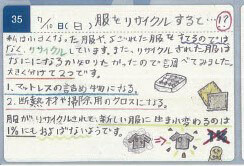 35
7/10日(日) 服をリサイクルすると… (!?)
私は小さくなった服や、よごれた服をすてるのでは
なく、リサイクルしています。また、リサイクルされた服は
なにになるか知りたかったので調べてみました。
大きく分けて2つです。
1.マットレスの詰め物になる。
2.断熱材や掃除用のクロスになる。
服がリサイクルされて、新しい服に生まれ変わるのは
1%にもおよばないようです。